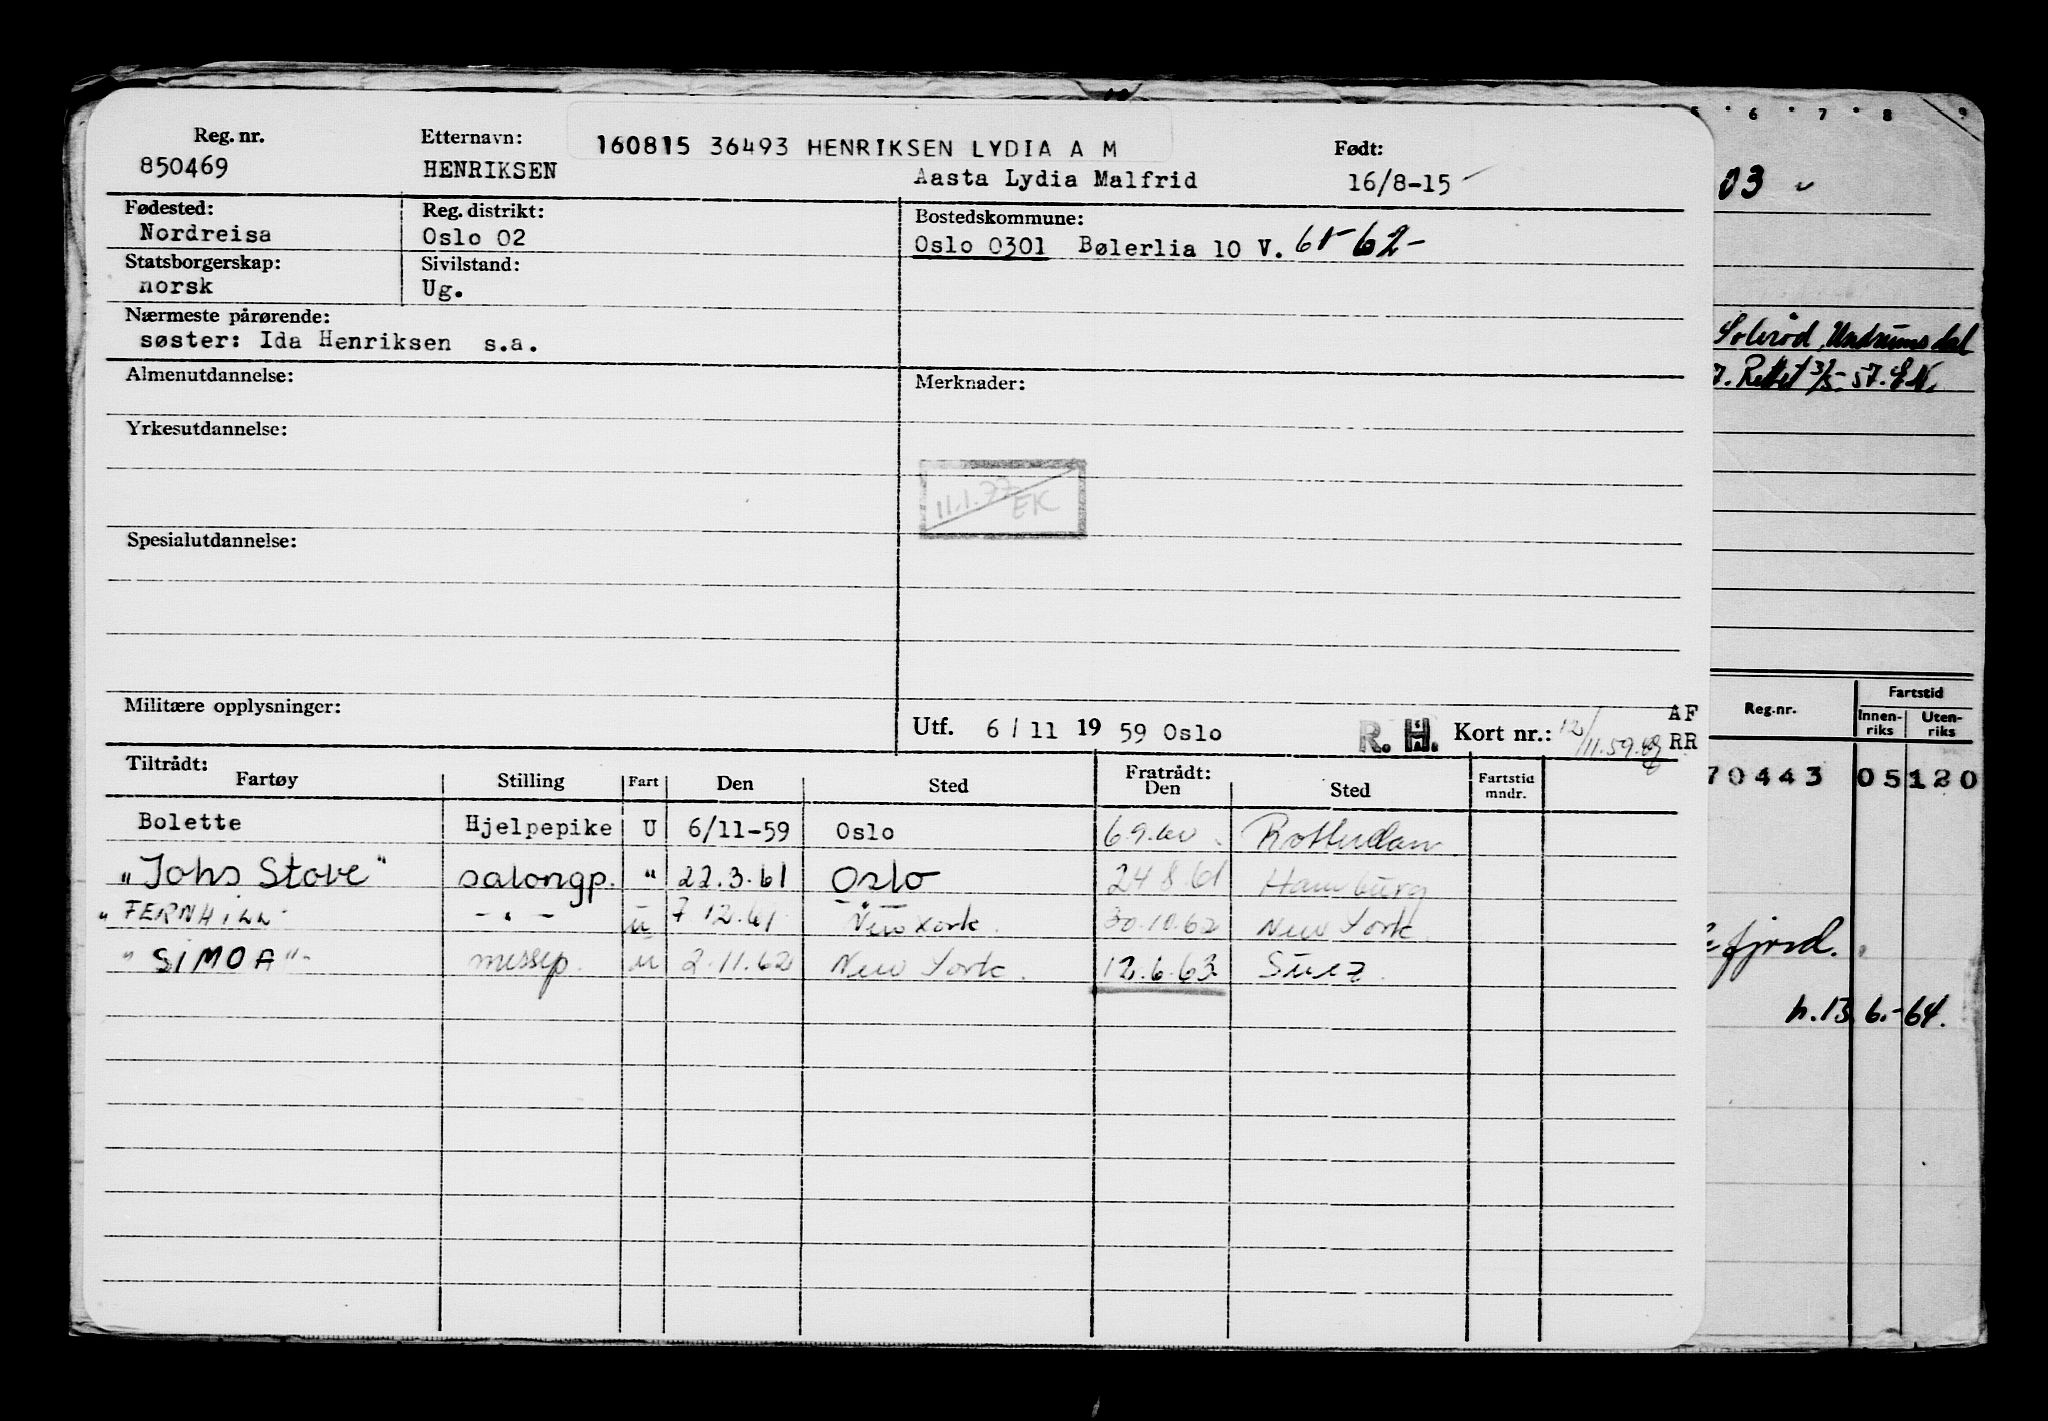 Reg. nr. Etternavn: 160815 36493 HENRIKSEN LYDIA A M Født:
850469 HENRIKSEN Aasta Lydia Malfrid 16/8-15
Fødested: Reg. distrikt: Bostedskommune:
Nordreisa Oslo 02 Oslo 0301 Bølerlia 10 V. 61- 62-
Statsborgerskap: Sivilstand:
norsk Ug.
Nærmeste pårørende:
søster: Ida Henriksen s.a.
Almenutdannelse: Merknader:
Yrkesutdannelse:
11.1.77 EK
Spesialutdannelse:
Militære opplysninger: Utf. 6/11 1959 Oslo R. H. Kort nr.: 12/11.59. AF
RR
Tiltrådt: Fratrådt:
Fartøy Stilling Fart Den Sted Den Sted Fartstid mndr.
Bolette Hjelpepike U 6/11-59 Oslo 6.9.60. Rotterdam
"Johs Stove" salongp. " 22.3.61 Oslo 24.8.61 Hamburg
"FERNHILL" - " - u 7.12.61. New York. 30.10.62 New York
"SIMOA" messep. u 2.11.62 New York. 12.6.63 Suez.
5 6 7 8 9
03
Solerød, Undrumsdal
7. Rettet 3/5-57. E.N.
Reg.nr. Fartstid
Innenriks Utenriks
70443 05120
fjord.
h.13.6.-64.